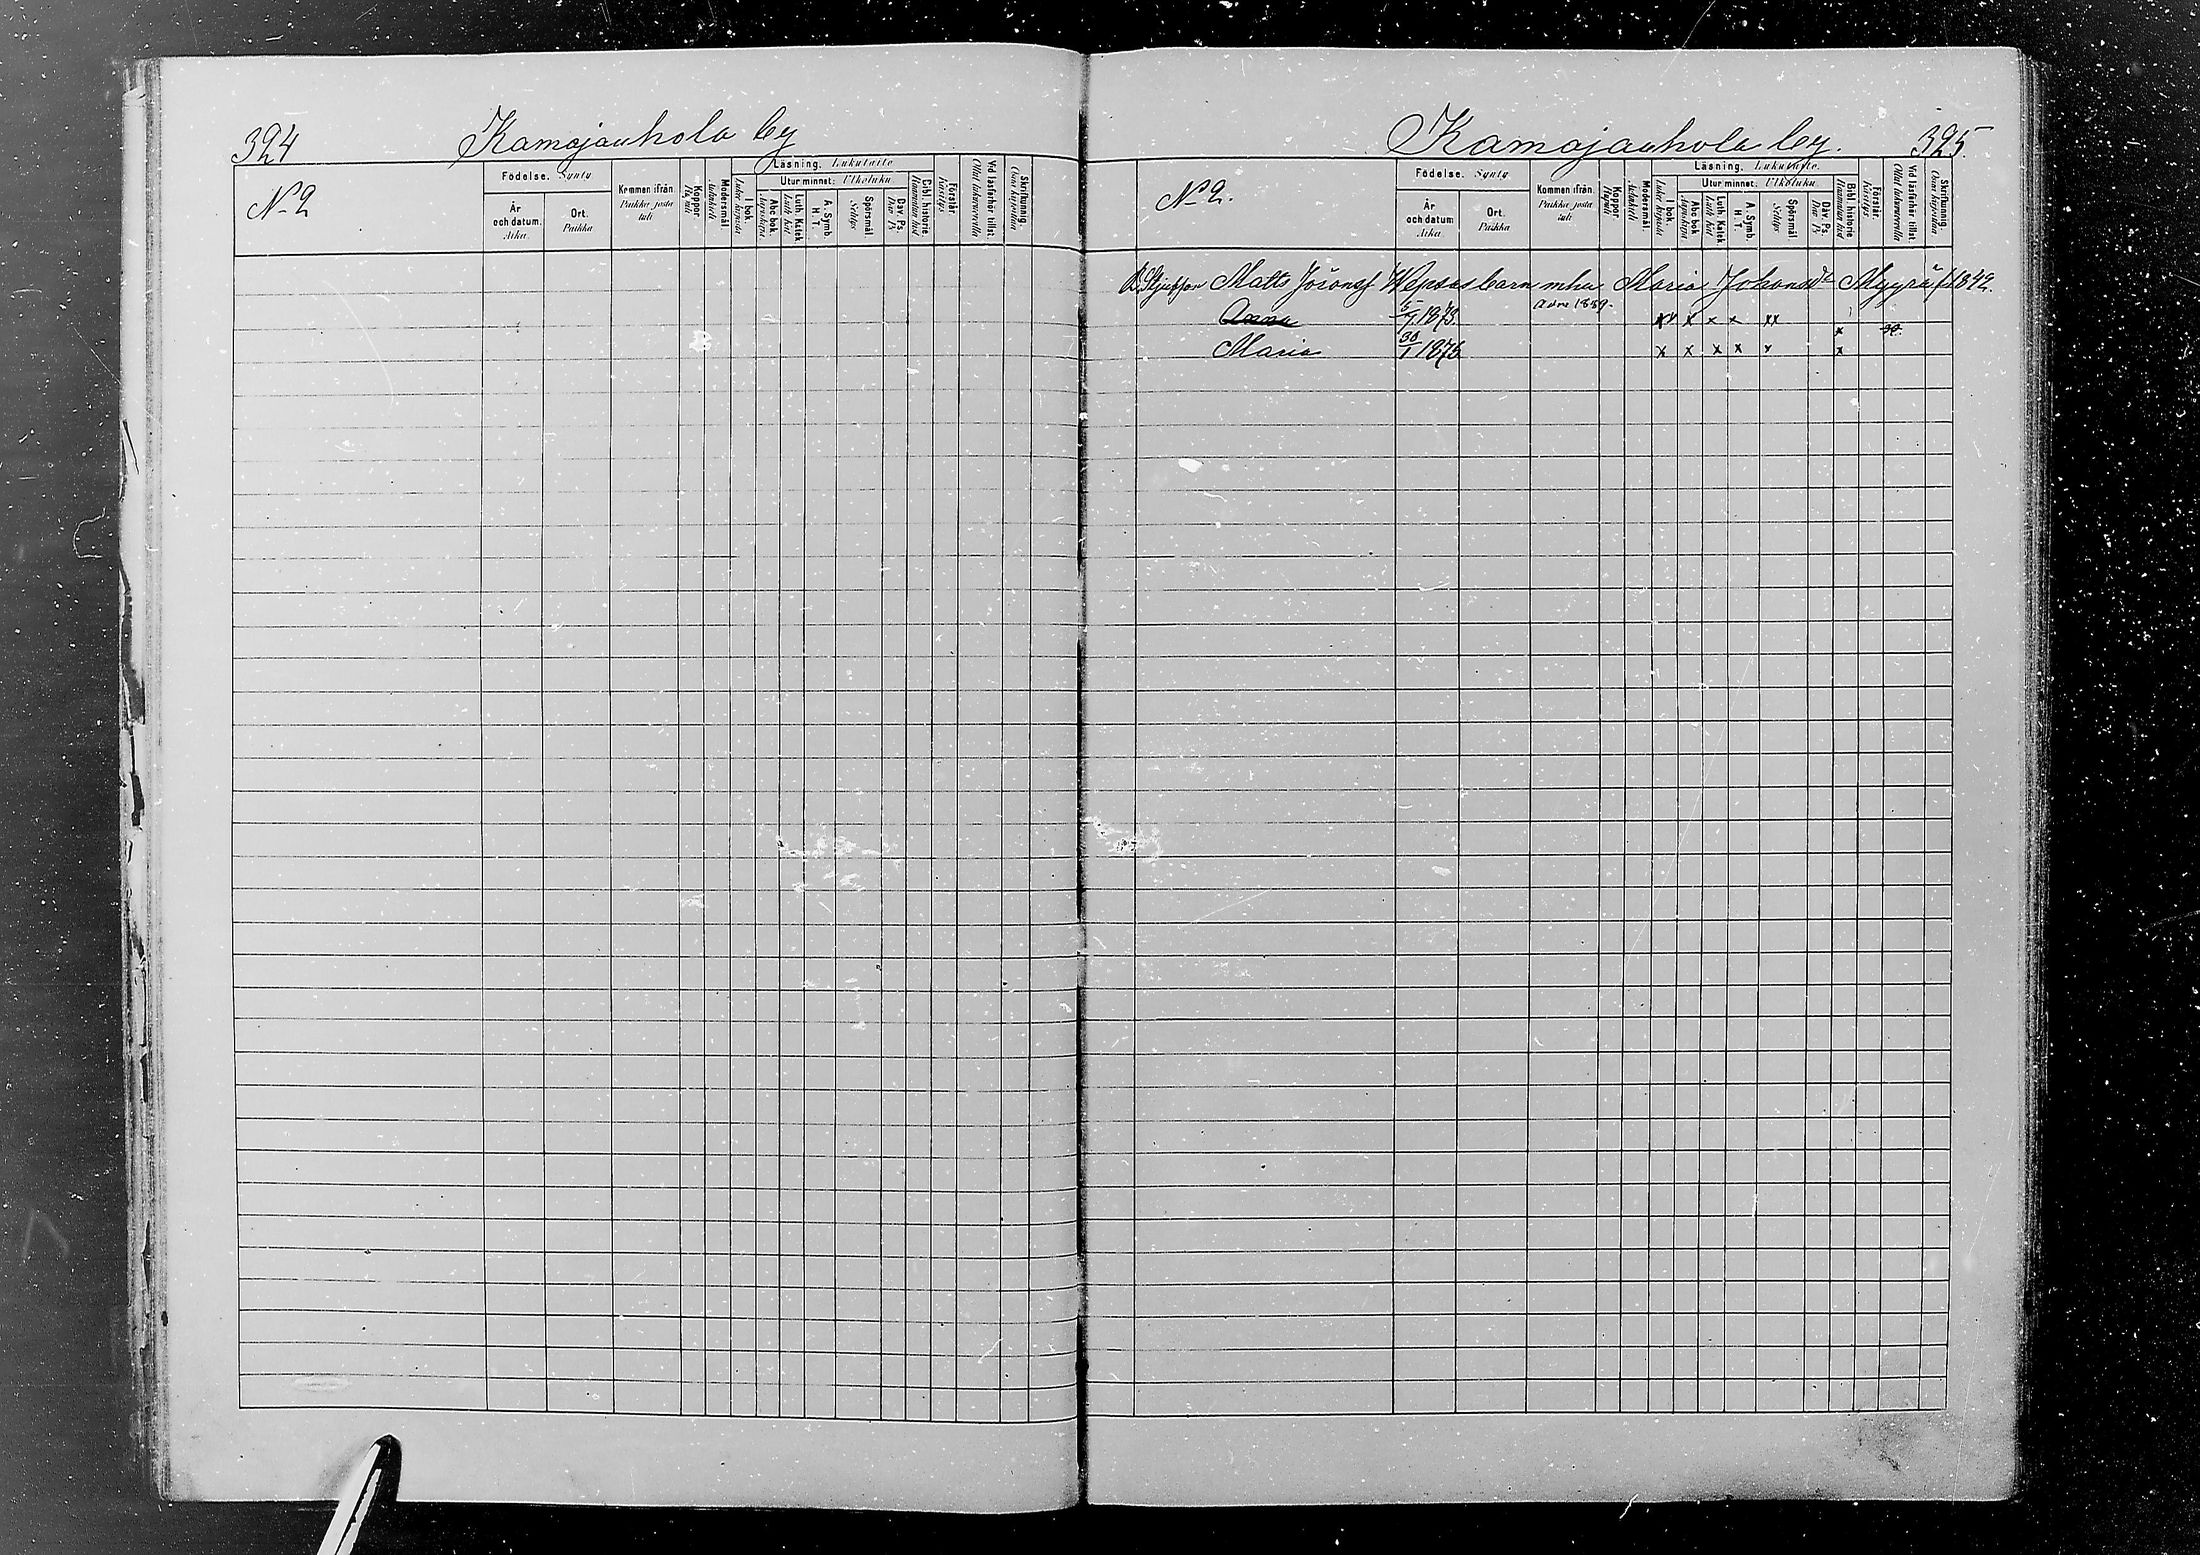 324 Kamajauhola by
No 2
Födelse. Synty
År och datum. Aika.
Ort. Paikka
Kommen ifrån. Paikka josta tuli
Koppor. Rupuli
Modersmål. Äidinkieli
Läsning. Lukutaito
I bok. Lukee kirjasta
Utur minnet: Ulkoluku.
Abc bok Aapiskirja
Luth. Katek Luth Kat.
A. Symb. H. T.
Spörsmål. Selitys
Dav. Ps. Dav Ps
Bibl. historie Raamatun hist
Förstår. Käsitys
Vid läsförhör tillst. Ollut lukukuulustelulla
Skrifkunnig. Osaa kirjoittaa
Kamajauhola by. 325.
No 2.
Födelse. Synty
År och datum Aika.
Ort. Paikka
Kommen ifrån. Paikka josta tuli
Koppor Rupuli
Modersmål. Äidinkieli
Läsning. Lukutaito.
I bok. Lukee kirjasta
Utur minnet: Ulkoluku.
Abc bok Aapiskirja
Luth. Katek Luth Kat
A. Symb. H. T.
Spörsmål Selitys
Dav. Ps. Dav Ps
Bibl. historie Raamatun hist
Förstår. Käsitys
Vid läsförhör tillst.
Skrifkunnig. Osaa kirjoittaa
Matts Wepsas barn mha Maria Johansd:r Myyrä f. 1842.
Anna 5/7 1873. Adm 1889. x x x x x x x x
Maria 30/1 1875 x x x x x x